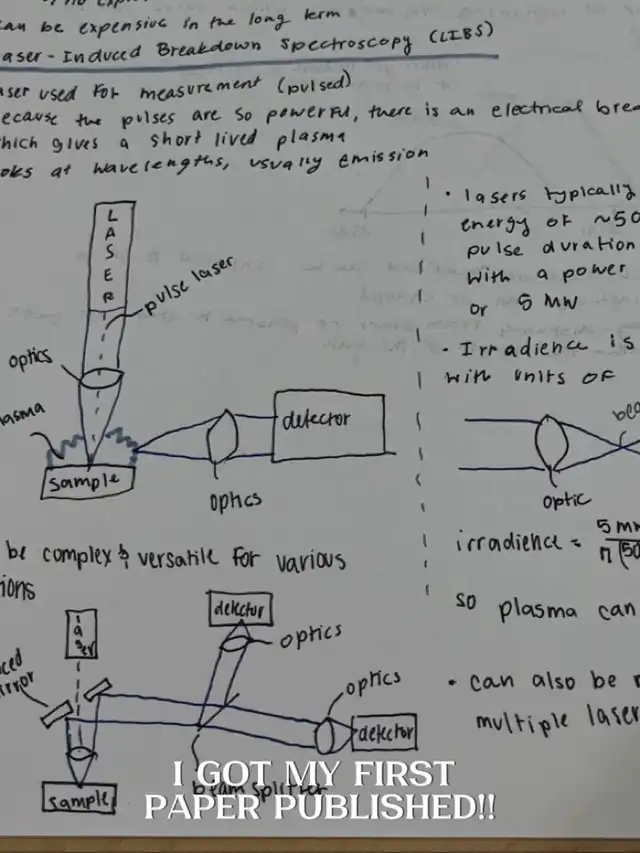 can be expensive in the long term
aser-Induced Breakdown Spectroscopy (LIBS)
aser used for measurement (pulsed)
ecause the pulses are so powerful, there is an electrical brea
hich gives a short lived plasma
oks at wavelengths, usually emission
LASER
pulse laser
optics
lasma
sample
optics
detector
• lasers typically
energy of ~50
pulse duration
with a power
or 5 MW
• Irradience is
with units of
bea
optic
irradience = 5 MW
π (50
so plasma can
• can also be
multiple laser
be complex & versatile for various
ions
laser
ced
irror
sample
detector
optics
optics
detector
beam splitter
I GOT MY FIRST
PAPER PUBLISHED!!